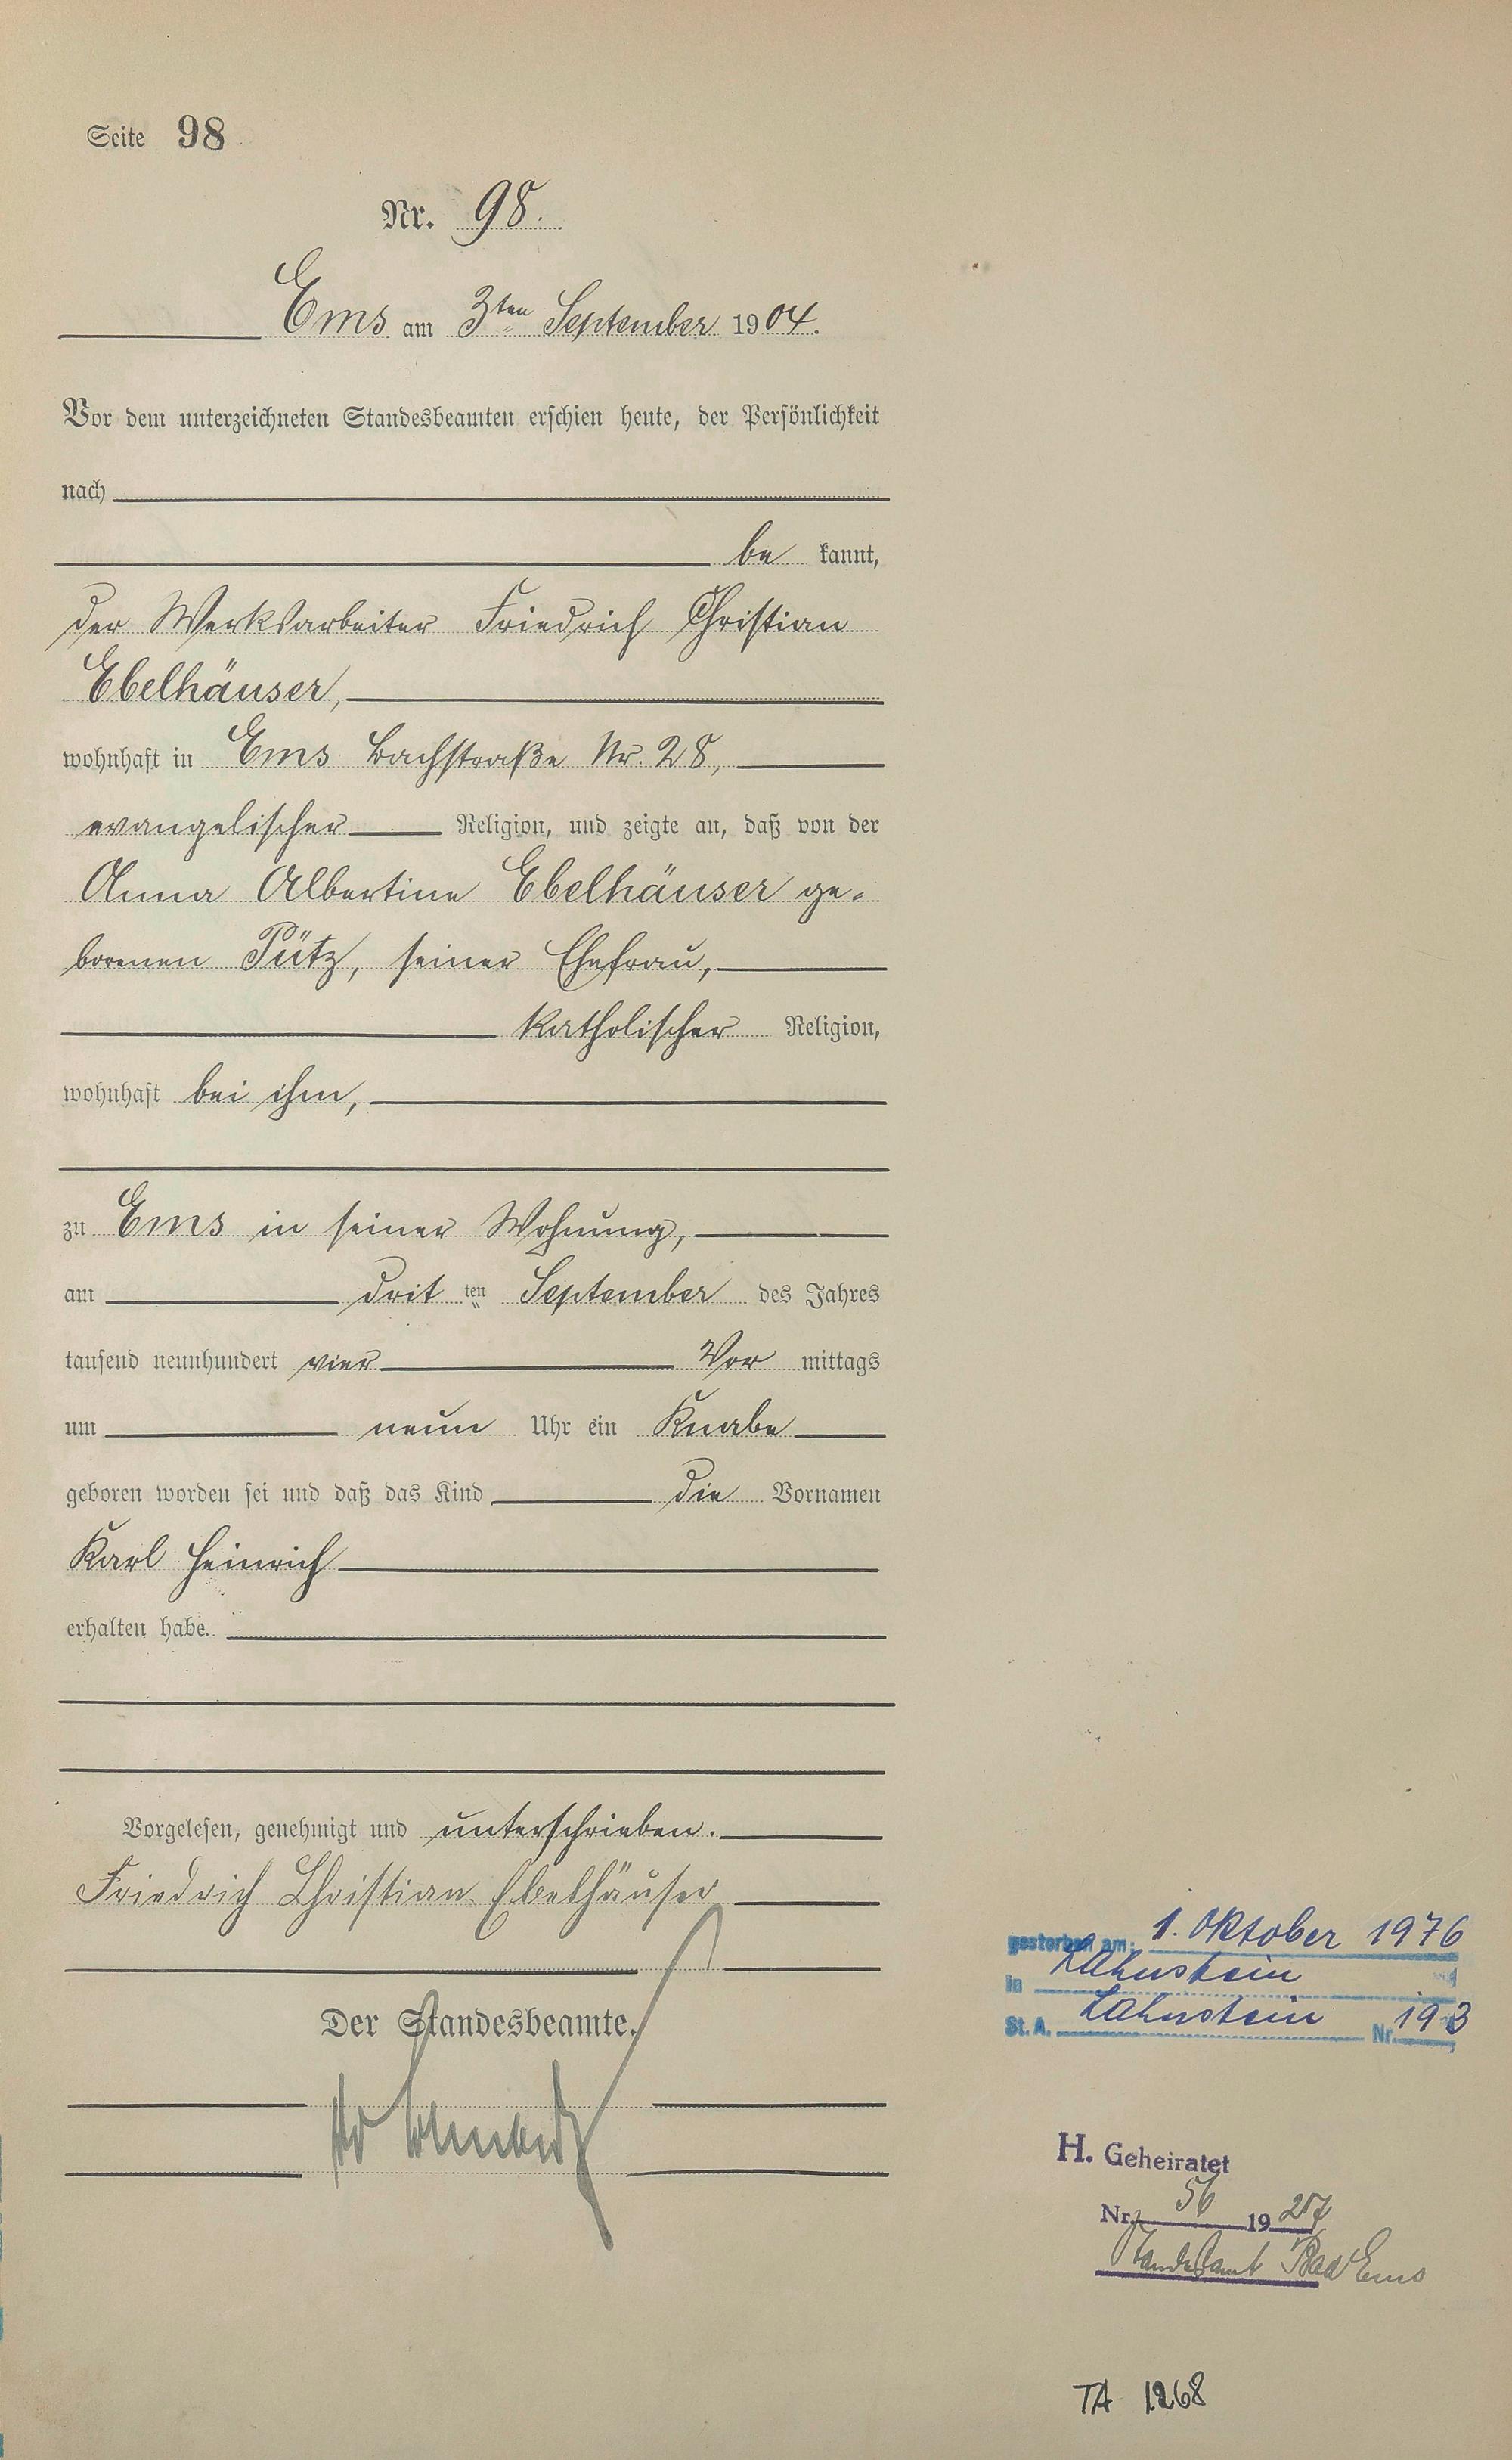 Seite 98
Nr. 98.
Ems am 3ten September 1904.
Vor dem unterzeichneten Standesbeamten erschien heute, der Persönlichkeit
nach
be kannt,
der Werksarbeiter Friedrich Christian
Ebelhäuser,
wohnhaft in Ems Bachstraße Nr. 28,
evangelischer Religion, und zeigte an, daß von der
Anna Albertine Ebelhäuser ge-
borenen Pütz, seiner Ehefrau,
katholischer Religion,
wohnhaft bei ihm,
zu Ems in seiner Wohnung,
am dritten September des Jahres
tausend neunhundert vier Vor mittags
um neun Uhr ein Knabe
geboren worden sei und daß das Kind die Vornamen
Karl Heinrich
erhalten habe.
Vorgelesen, genehmigt und unterschrieben.
Friedrich Christian Ebelhäuser
Der Standesbeamte.
gestorben am: 1. Oktober 1976
in Lahnstein
St. A. Lahnstein Nr. 193
H. Geheiratet
Nr. 56 1927
Standesamt Bad Ems
TA 1268